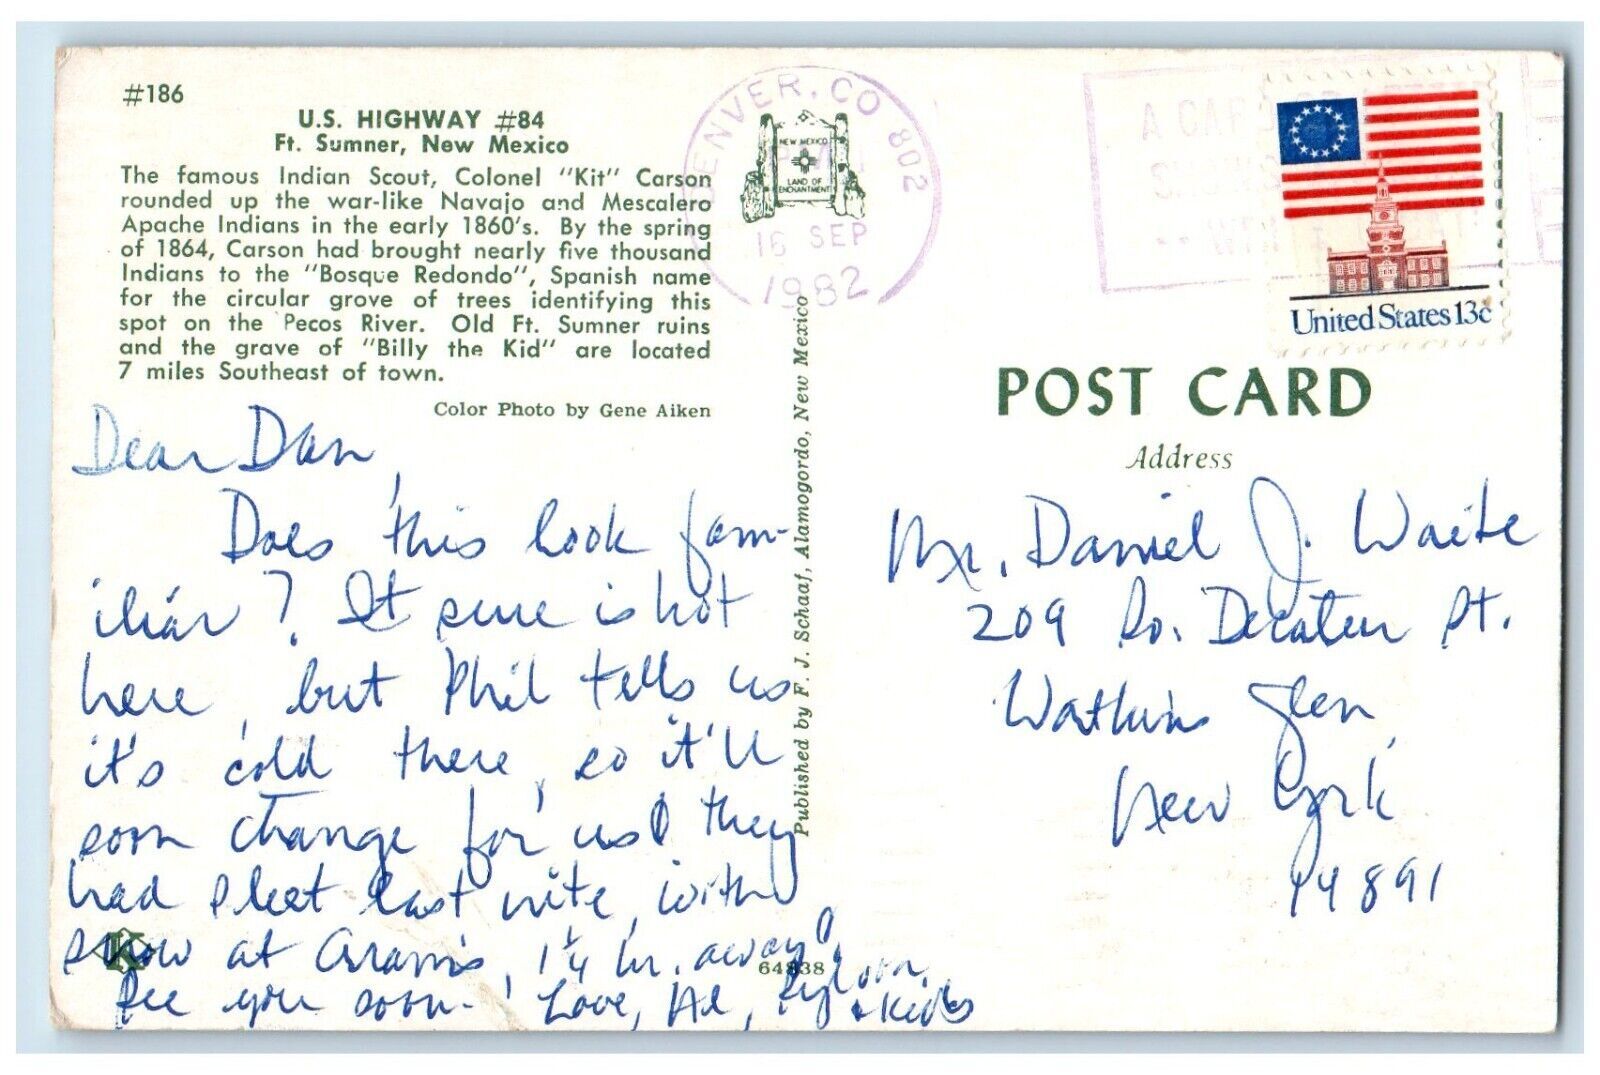 #186
U.S. HIGHWAY #84
Ft. Sumner, New Mexico
The famous Indian Scout, Colonel "Kit" Carson
rounded up the war-like Navajo and Mescalero
Apache Indians in the early 1860's. By the spring
of 1864, Carson had brought nearly five thousand
Indians to the "Bosque Redondo", Spanish name
for the circular grove of trees identifying this
spot on the Pecos River. Old Ft. Sumner ruins
and the grave of "Billy the Kid" are located
7 miles Southeast of town.
Color Photo by Gene Aiken
Dear Dan,
Does this look fam-
iliar? It sure is hot
here, but Phil tells us
it's cold there, so it'll
soon change for us! they
had sleet last nite, with
snow at Aram's, 1¼ hr. away!
See you soon! Love, Al,
& kids
K
64838
Published by F. J. Schaaf, Alamogordo, New Mexico
DENVER, CO 802
16 SEP
1982
NEW MEXICO
LAND OF
ENCHANTMENT
A CAR
United States 13c
POST CARD
Address
Mr. Daniel J. Waite
209 So. Decatur St.
Watkins Glen,
New York
14891